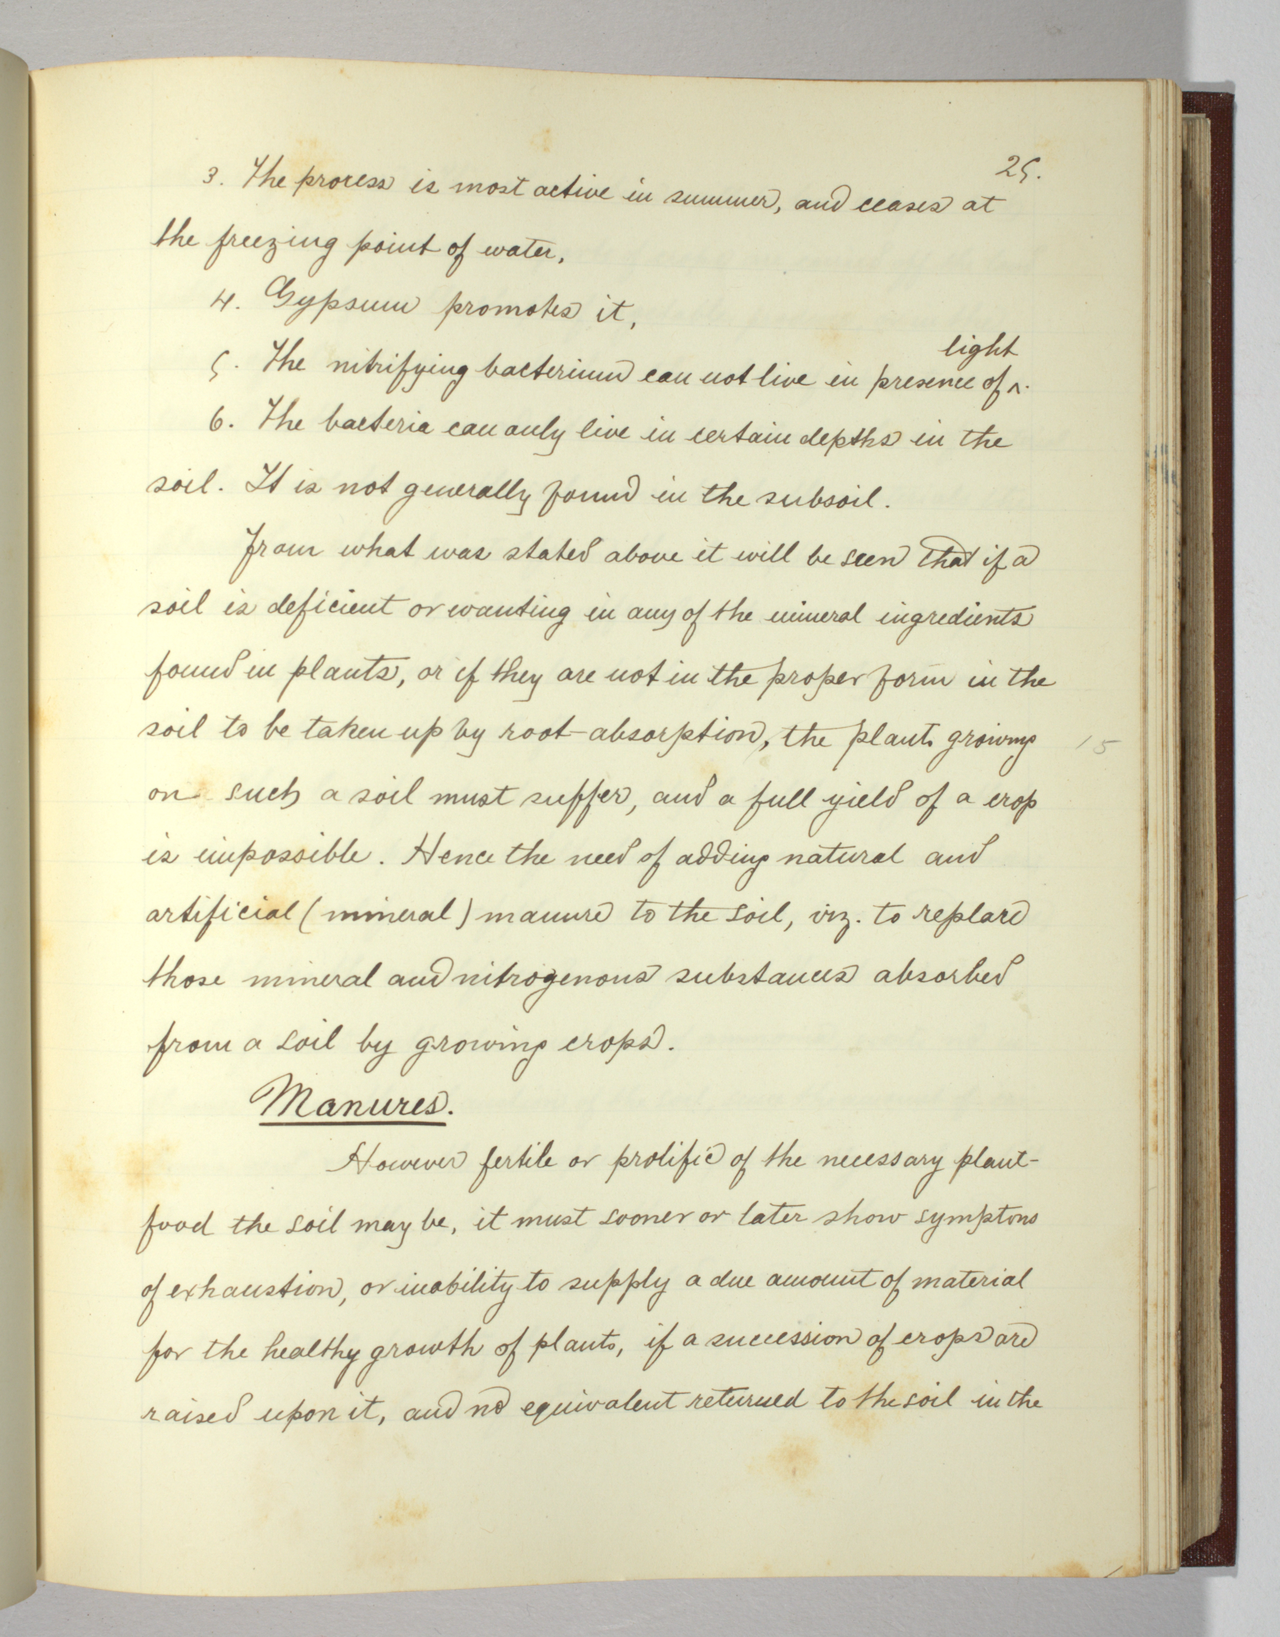 25.
3. The process is most active in summer, and ceases at
the freezing point of water.
4. Gypsum promotes it.
light
5. The nitrifying bacterium can not live in presence of ^.
6. The bacteria can only live in certain depths in the
soil. It is not generally found in the subsoil.
From what was stated above it will be seen that if a
soil is deficient or wanting in any of the mineral ingredients
found in plants, or if they are not in the proper form in the
soil to be taken up by root-absorption, the plants growing
15
on such a soil must suffer, and a full yield of a crop
is impossible. Hence the need of adding natural and
artificial (mineral) manure to the soil, viz. to replace
those mineral and nitrogenous substances absorbed
from a soil by growing crops.
Manures.
However fertile or prolific of the necessary plant-
food the soil may be, it must sooner or later show symptoms
of exhaustion, or inability to supply a due amount of material
for the healthy growth of plants, if a succession of crops are
raised upon it, and no equivalent returned to the soil in the